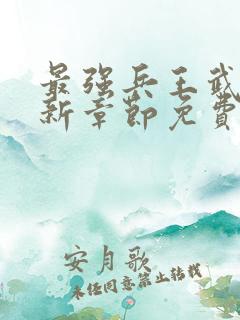 最强兵王武
新章節免費
安月歌
未经同意禁止转载